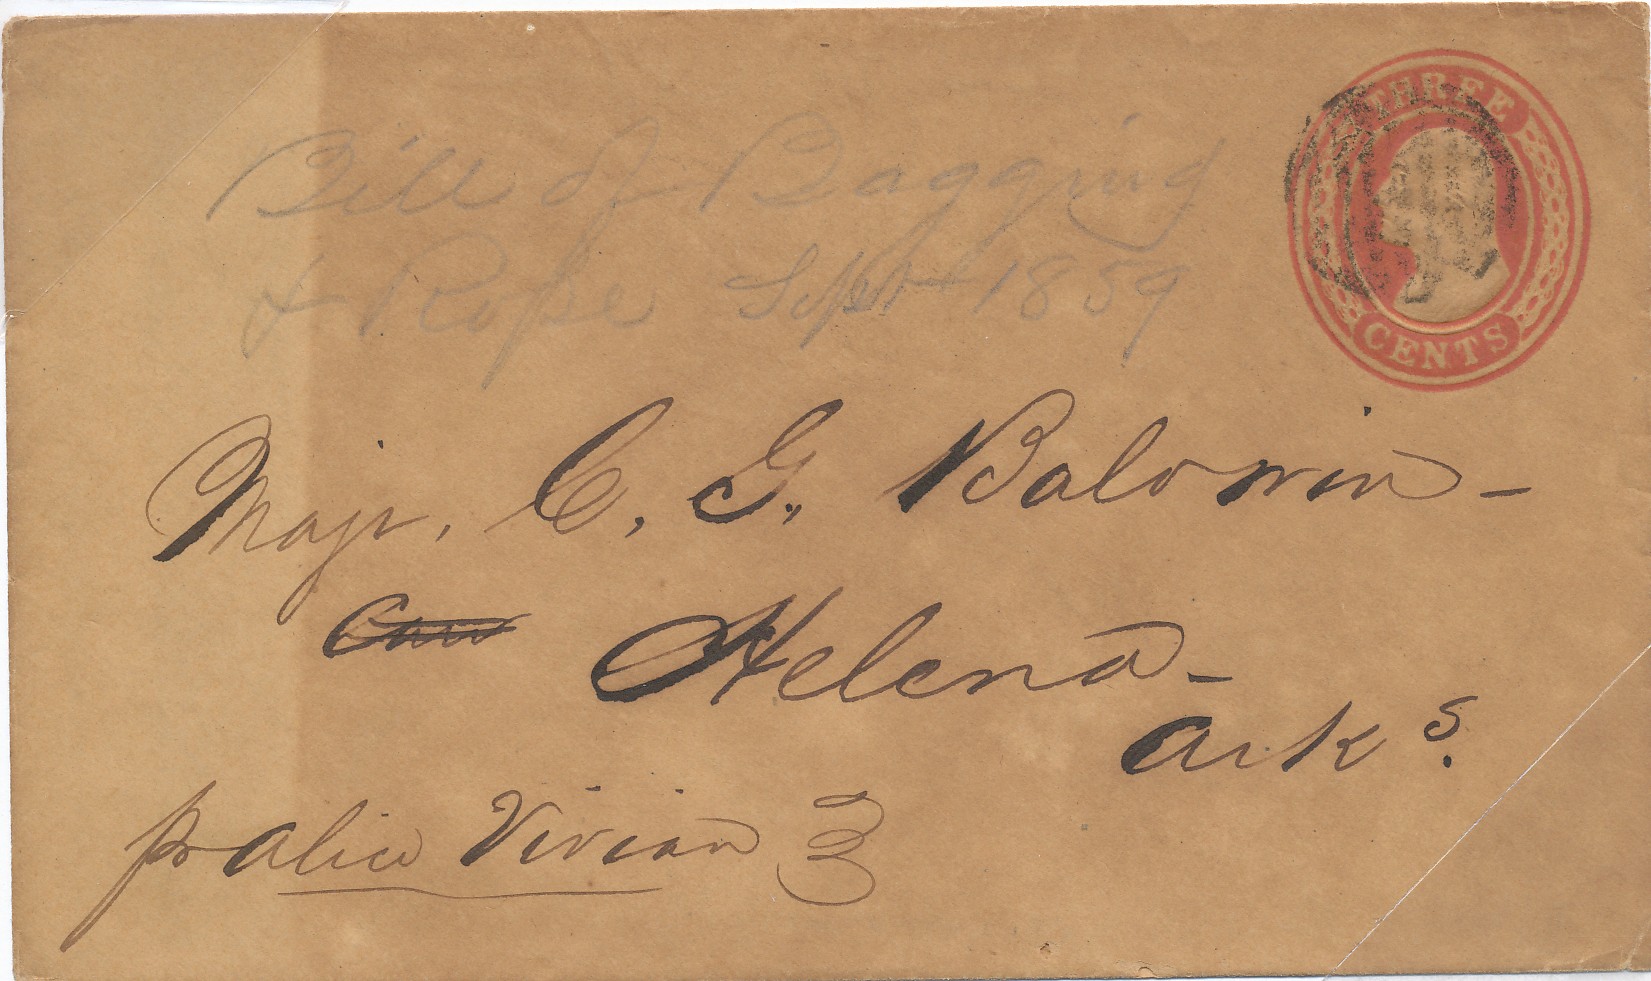 THREE
CENTS
Bill of Bagging
& Rope Sept 1859
Majr. C. G. Baldwin -
Helena -
Arks.
pr Alice Vivian